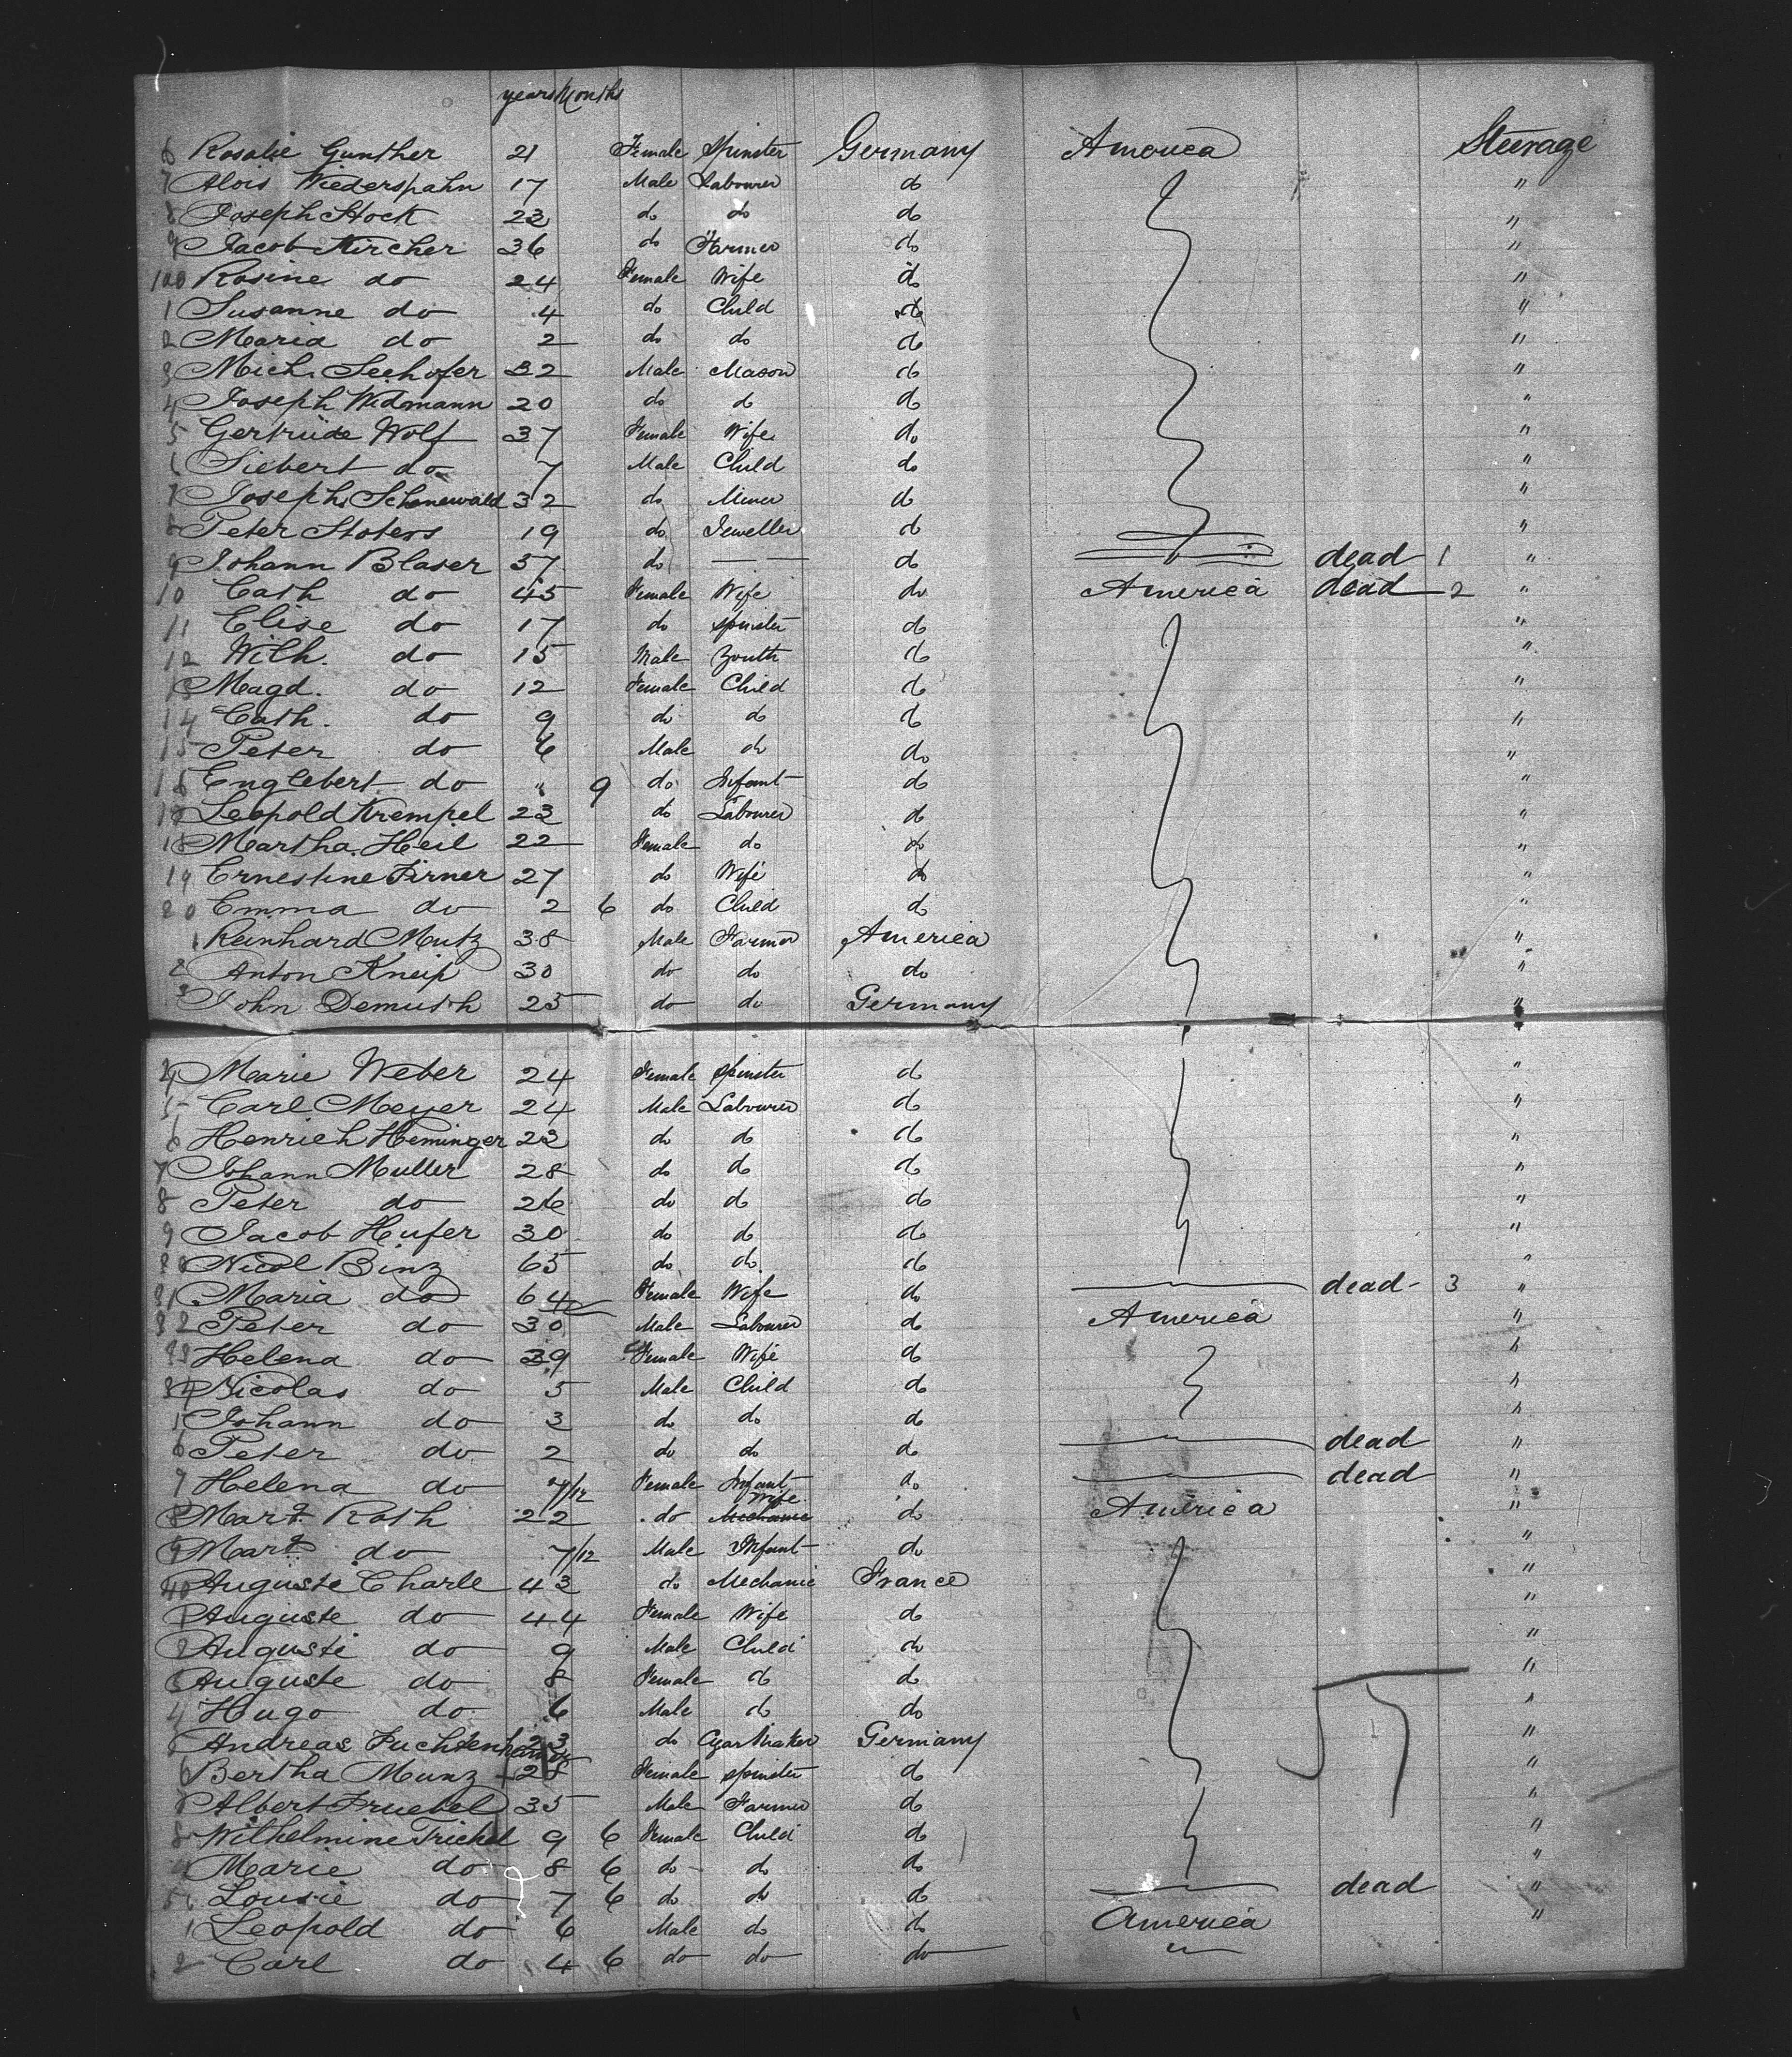 years Months
6 Rosalie Gunther 21 Female Spinster Germany America Steerage
7 Alois Wiederspahn 17 Male Labourer do "
8 Joseph Stock 23 do do do "
9 Jacob Kircher 36 do Farmer do "
100 Rosine do 24 Female Wife do "
1 Susanne do 4 do Child do "
2 Maria do 2 do do do "
3 Mich. Seehofer 32 Male Mason do "
4 Joseph Widmann 20 do do do "
5 Gertrude Wolf 37 Female Wife do "
6 Siebert do 7 Male Child do "
7 Joseph Schonewald 32 do Miner do "
8 Peter Stoters 19 do Jeweller do "
9 Johann Blaser 37 do — do dead 1 "
10 Cath do 45 Female Wife do America dead 2 "
11 Elise do 17 do Spinster do "
12 Wilh. do 15 Male Youth do "
13 Magd. do 12 Female Child do "
14 Cath. do 9 do do do "
15 Peter do 6 Male do do "
16 Englebert do " 9 do Infant do "
17 Leopold Krempel 23 do Labourer do "
18 Martha Heil 22 Female do do "
19 Ernestine Firner 27 do Wife do "
20 Emma do 2 6 do Child do "
1 Reinhard Mutz 38 Male Farmer America "
2 Anton Kneip 30 do do do "
3 John Demuth 25 do do Germany "
4 Marie Weber 24 Female Spinster do "
5 Carl Meyer 24 Male Labourer do "
6 Henrich Heminger 23 do do do "
7 Johann Muller 28 do do do "
8 Peter do 26 do do do "
9 Jacob Hufer 30 do do do "
Nicol Binz 65 do do do "
31 Maria do 64 Female Wife do dead 3 "
32 Peter do 30 Male Labourer do America "
33 Helena do 39 Female Wife do "
34 Nicolas do 5 Male Child do "
Johann do 3 do do do "
6 Peter do 2 do do do dead "
7 Helena do 7/12 Female Infant do dead "
8 Mart. Roth 22 do Wife Mechanic do America "
9 Mart. do 7/12 Male Infant do "
40 Auguste Charle 43 do Mechanic France "
1 Auguste do 44 Female Wife do "
2 Auguste do 9 Male Child do "
3 Auguste do 8 Female do do "
4 Hugo do 6 Male do do "
Andreas 23 do Cigar Maker Germany "
6 Bertha Munz 28 Female Spinster do "
Albert Fruebel 35 Male Farmer do "
8 Wilhelmine Trichel 9 6 Female Child do "
Marie do 8 6 do do do "
Lousie do 7 6 do do do dead "
1 Leopold do 6 Male do do America "
2 Carl do 4 6 do do do "